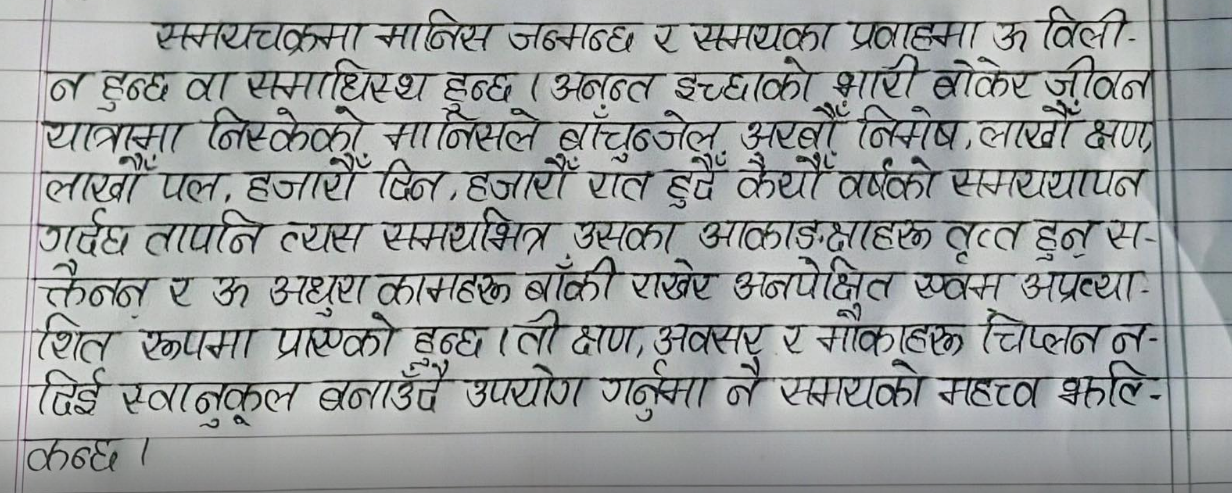 समयचक्रमा मानिस जन्मन्छ र समयका प्रवाहमा ऊ विली-
न हुन्छ वा समाधिस्थ हुन्छ । अनन्त इच्छाको भारी बोकेर जीवन
यात्रामा निस्केको मानिसले बाँचुन्जेल अरबौँ निमेष, लाखौँ क्षण,
लाखौँ पल, हजारौँ दिन, हजारौँ रात हुदै कैयौँ वर्षको समययापन
गर्दछ तापनि त्यस समयभित्र उसका आकाङ्क्षाहरू तृप्त हुन स-
क्तैनन् र ऊ अधुरा कामहरू बाँकी राखेर अनपेक्षित एवम अप्रत्या-
शित रूपमा प्राएको हुन्छ । ती क्षण, अवसर र मौकाहरू चिप्लन न-
दिई स्वानुकूल बनाउँदै उपयोग गर्नुमा नै समयको महत्त्व झल्लि-
कन्छ ।